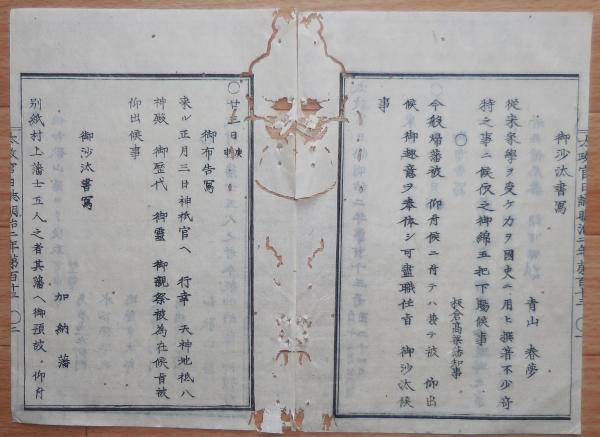 御沙汰書寫
青山春夢
從来家學ヲ受ケ力ヲ國史ニ用ヒ撰著不少奇
特之事ニ候依之御綿五把下賜候事
〇
板倉高梁藩知事
今般歸藩被 仰付候ニ付テハ兼テ被 仰出
候 御趣意ヲ奉体シ可盡職任旨 御沙汰候
事
太政官日誌明治二年第百十三 〇一
〇廿三日
御布告寫
來ル正月三日神祇官ヘ 行幸 天神地祇八
神殿 御歴代 御靈 御親祭被為在候旨被
仰出候事
御沙汰書寫
加納藩
別紙村上藩士五人之者其藩ヘ御預被 仰付
太政官日誌明治二年第百十三 〇二